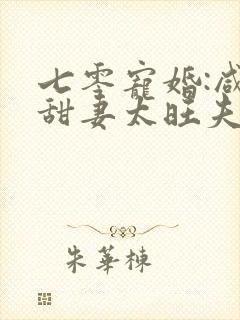 七零寵婚:咸
甜妻太旺夫
朱華棟